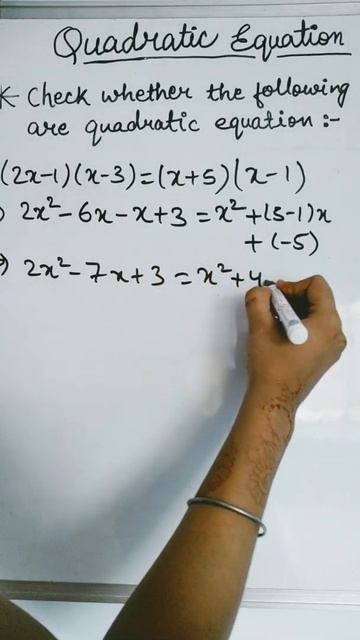 Quadratic Equation
* Check whether the following
are quadratic equation :-
(2x-1)(x-3)=(x+5)(x-1)
2x²-6x-x+3 = x²+(5-1)x
+ (-5)
2x²-7x+3 = x²+4